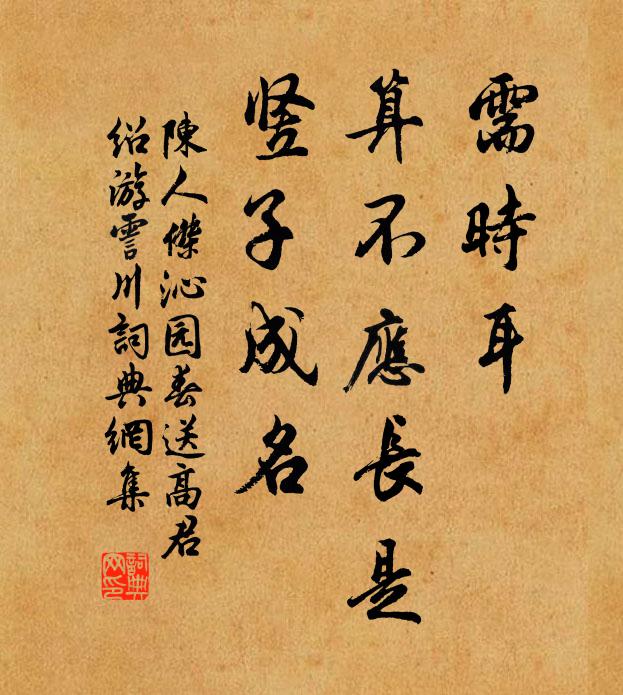 需時耳
算不應長是
豎子成名
陳人傑沁园春送高君
绍游霅川詞典網集
詞典网印